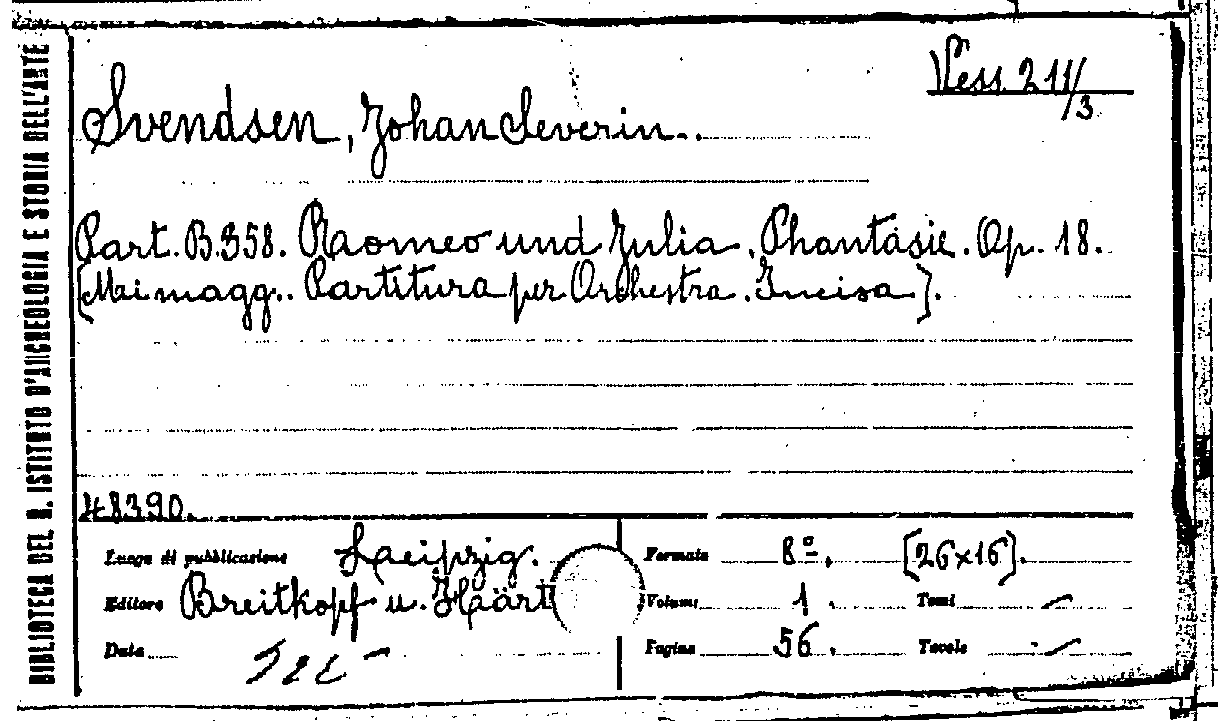 BIBLIOTECA DEL R. ISTITUTO D'ARCHEOLOGIA E STORIA DELL'ARTE
Vess. 211/3
Svendsen, Johan Severin..
Part. B.358. Raomeo und Julia. Phantasie. Op. 18.
[Mi magg.. Partitura per Orchestra. Incisa.].
48390.
Luogo di pubblicazione Laeipzig.
Editore Breitkopf u. Häärt
Data
Formato 8º. [26x16].
Volumi 1. Tomi —
Pagine 56. Tavole —